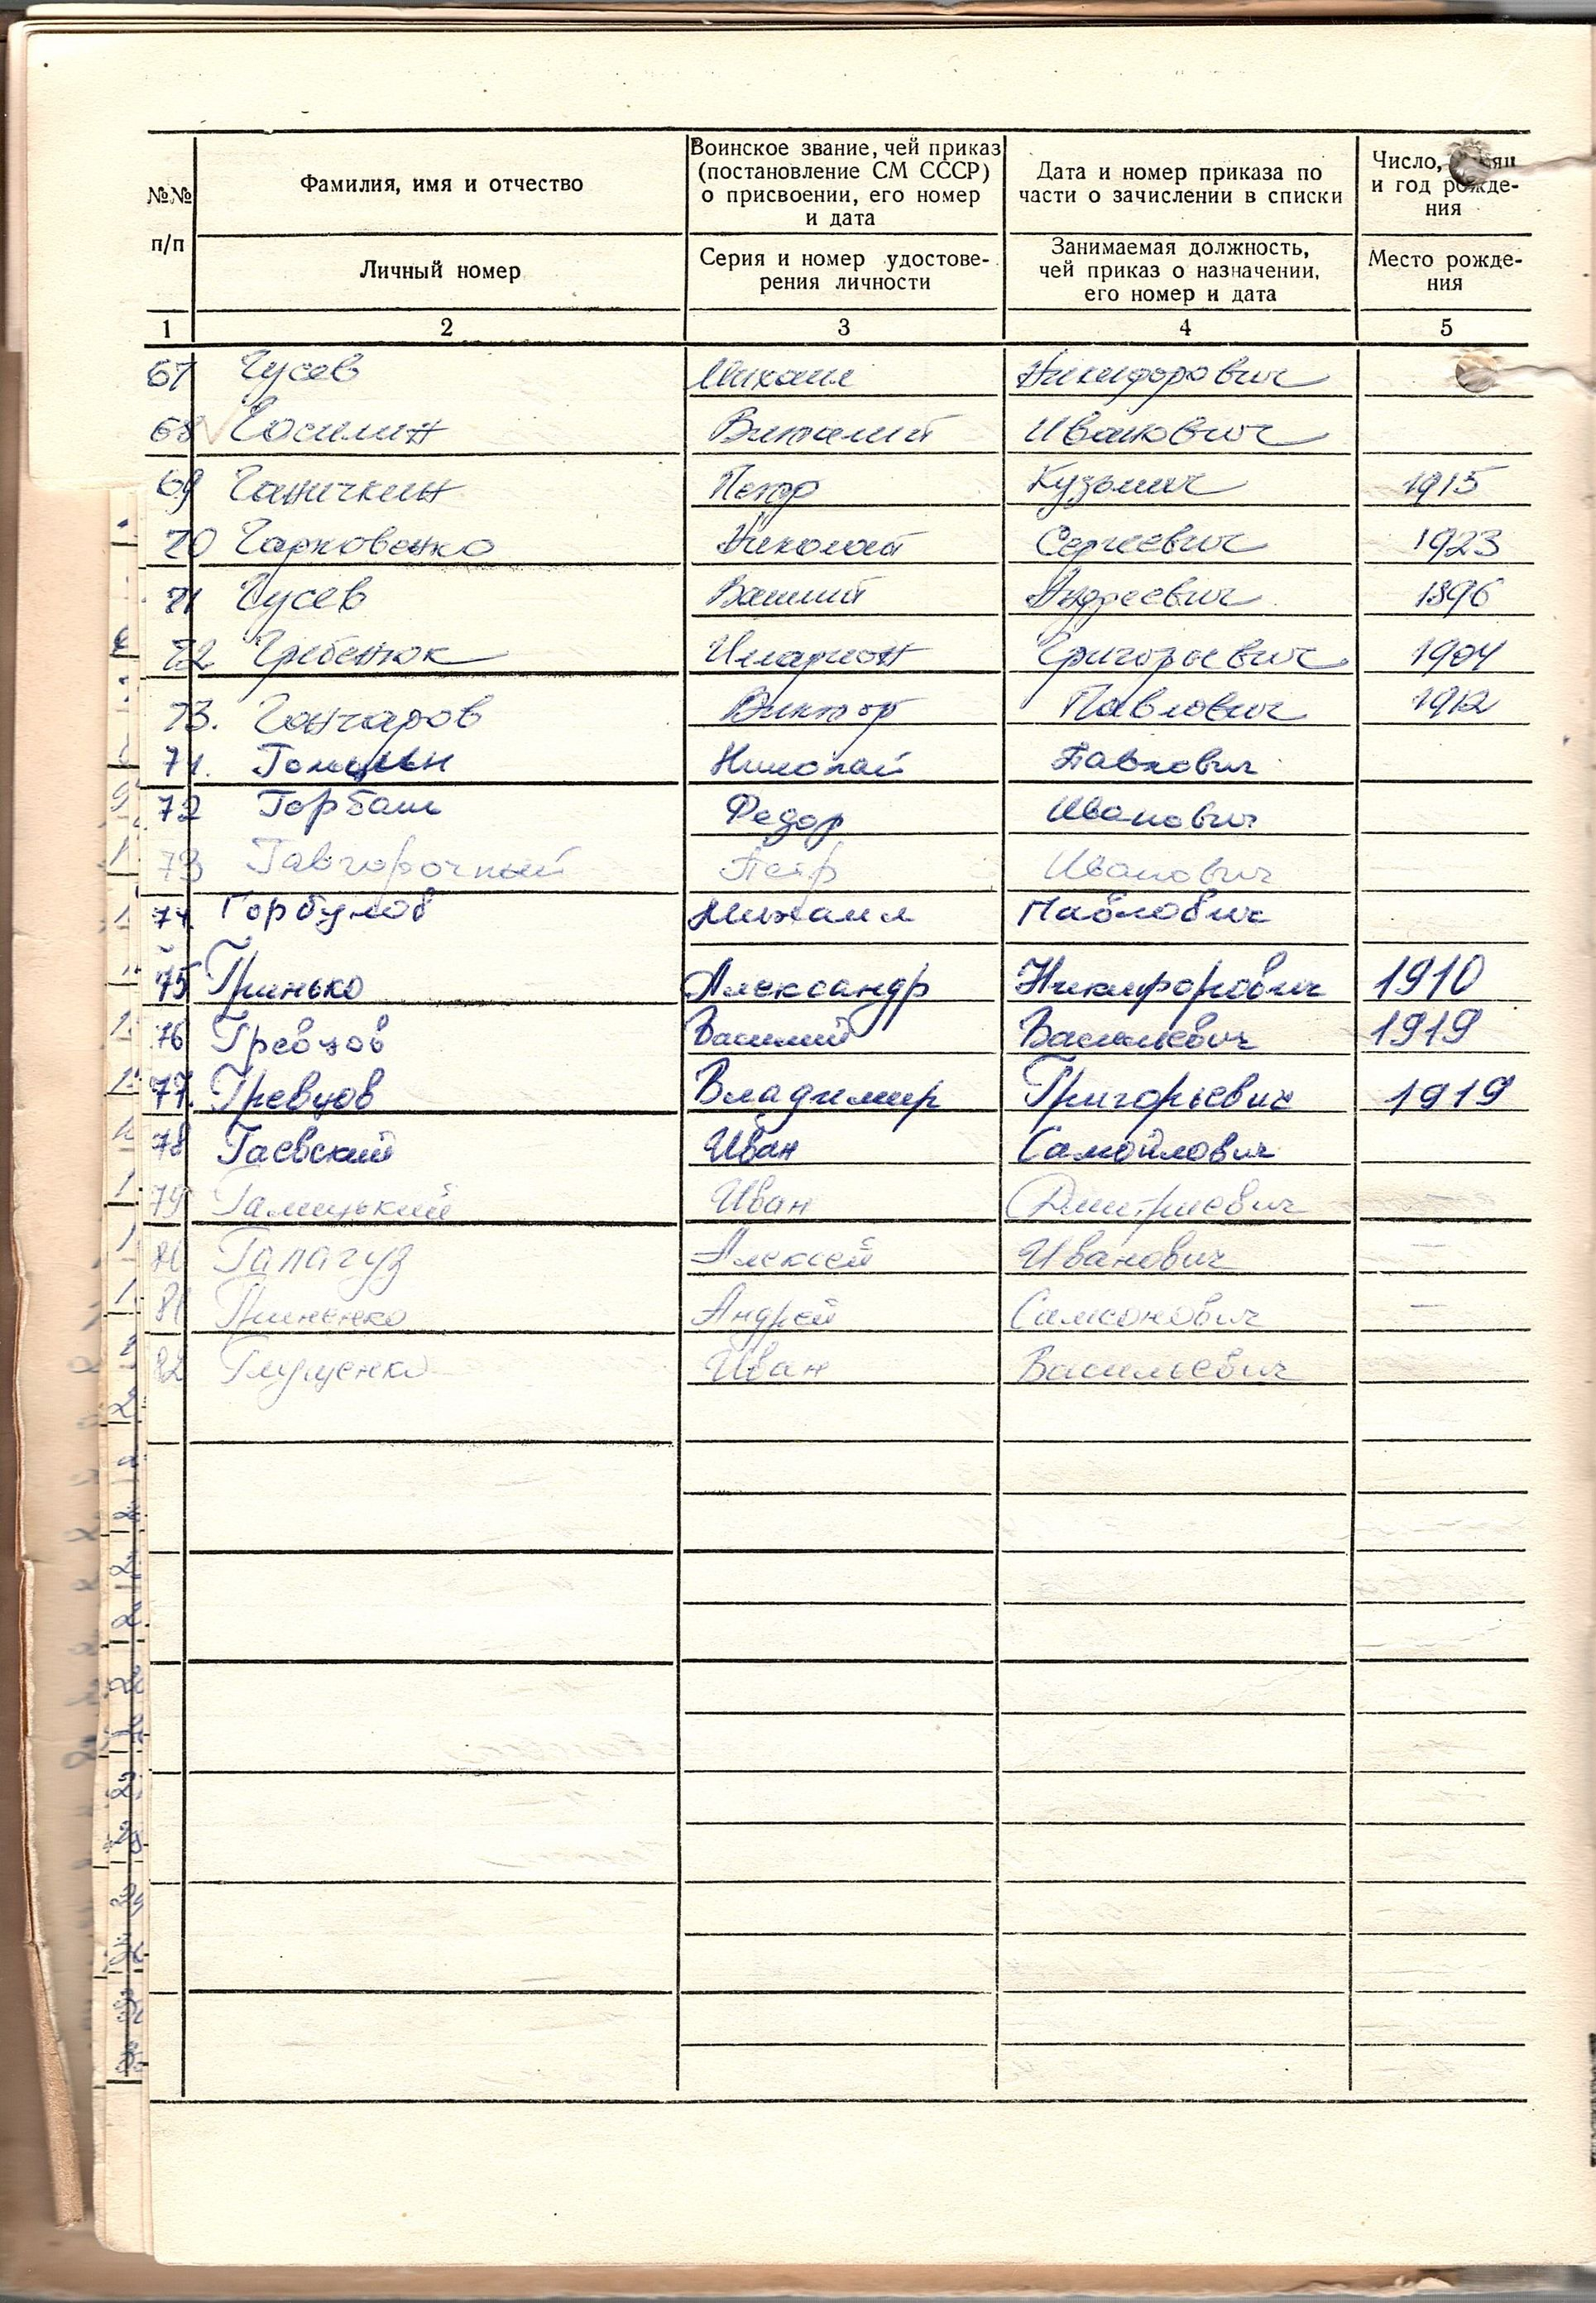 №№ п/п
Фамилия, имя и отчество
Личный номер
Воинское звание, чей приказ
(постановление СМ СССР)
о присвоении, его номер
и дата
Серия и номер удостове-
рения личности
Дата и номер приказа по
части о зачислении в списки
Занимаемая должность,
чей приказ о назначении,
его номер и дата
Число,
и год рожде-
ния
Место рожде-
ния
1 2 3 4 5
67 Гусев Михаил Никифорович
68 Госилин Виталий Иванович
69 Ганичкин Петр Кузьмич 1915
70 Гарковенко Николай Сергеевич 1923
71 Гусев Василий Андреевич 1896
72 Гребенюк Иларион Григорьевич 1904
73. Гончаров Виктор Павлович 1912
71. Николай Павлович
72 Горбаш Федор Иванович
73 Петр Иванович
74 Горбунов Михаил Павлович
75 Гринько Александр Никифорович 1910
76 Гревцов Василий Васильевич 1919
77. Гревцов Владимир Григорьевич 1919
78 Гаевский Иван Самойлович
79 Галицький Иван Дмитриевич —
80 Галагуз Алексей Иванович —
81 Андрей Самсонович —
82 Глущенко Иван Васильевич